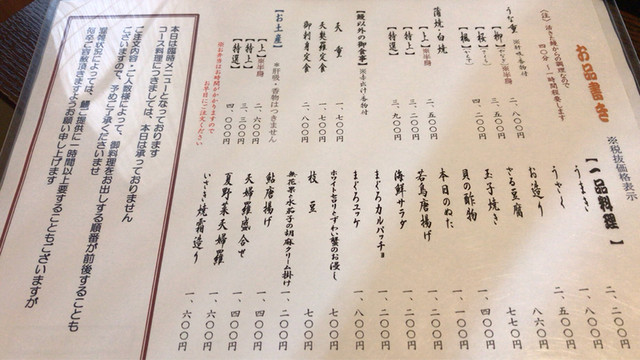 お品書き ※税抜価格表示
(注)活き鰻からの調理なので
四〇分~一時間程要します
うな重 ※肝吸・香物付
【柳】(やなぎ)※半身 二、八〇〇円
【桜】(さくら) 三、五〇〇円
【楓】(かえで) 四、二〇〇円
蒲焼・白焼
【上】※半身 二、五〇〇円
【特上】 三、二〇〇円
【特選】 三、九〇〇円
【鰻以外の御食事】 ※赤出汁・香物付
天重 一、七〇〇円
天婦羅定食 一、七〇〇円
御刺身定食 二、八〇〇円
【お土産】 ※肝吸・香物はつきません
【上】※半身 二、六〇〇円
【特上】 三、三〇〇円
【特選】 四、〇〇〇円
※お弁当はお時間がかかりますので
お早目にご注文ください
【一品料理】
うまき
うざく
お造り 二、五〇〇円
ざる豆腐 八六〇円
玉子焼き 七〇〇円
貝の酢物 一、四〇〇円
本日のぬた
若鳥唐揚げ
海鮮サラダ 一、二〇〇円
まぐろカルパッチョ
まぐろユッケ 一、八〇〇円
ホワイトセロリとずわい蟹のお浸し
枝豆 七〇〇円
無花果と水茄子の胡麻クリーム掛け 一、二〇〇円
鮎唐揚げ 一、四〇〇円
天婦羅盛合せ
夏野菜天婦羅
いさき焼霜造り 一、六〇〇円
本日は臨時メニューとなっております
コース料理につきましては、本日は承っておりません
ご注文内容・ご人数様によって、御料理をお出しする順番が前後することも
ございますので、予めご了承くださいませ
営報状況によっては、鰻ご提供に一時間以上要することもございますが
何卒ご容赦頂きますようお願い申し上げます